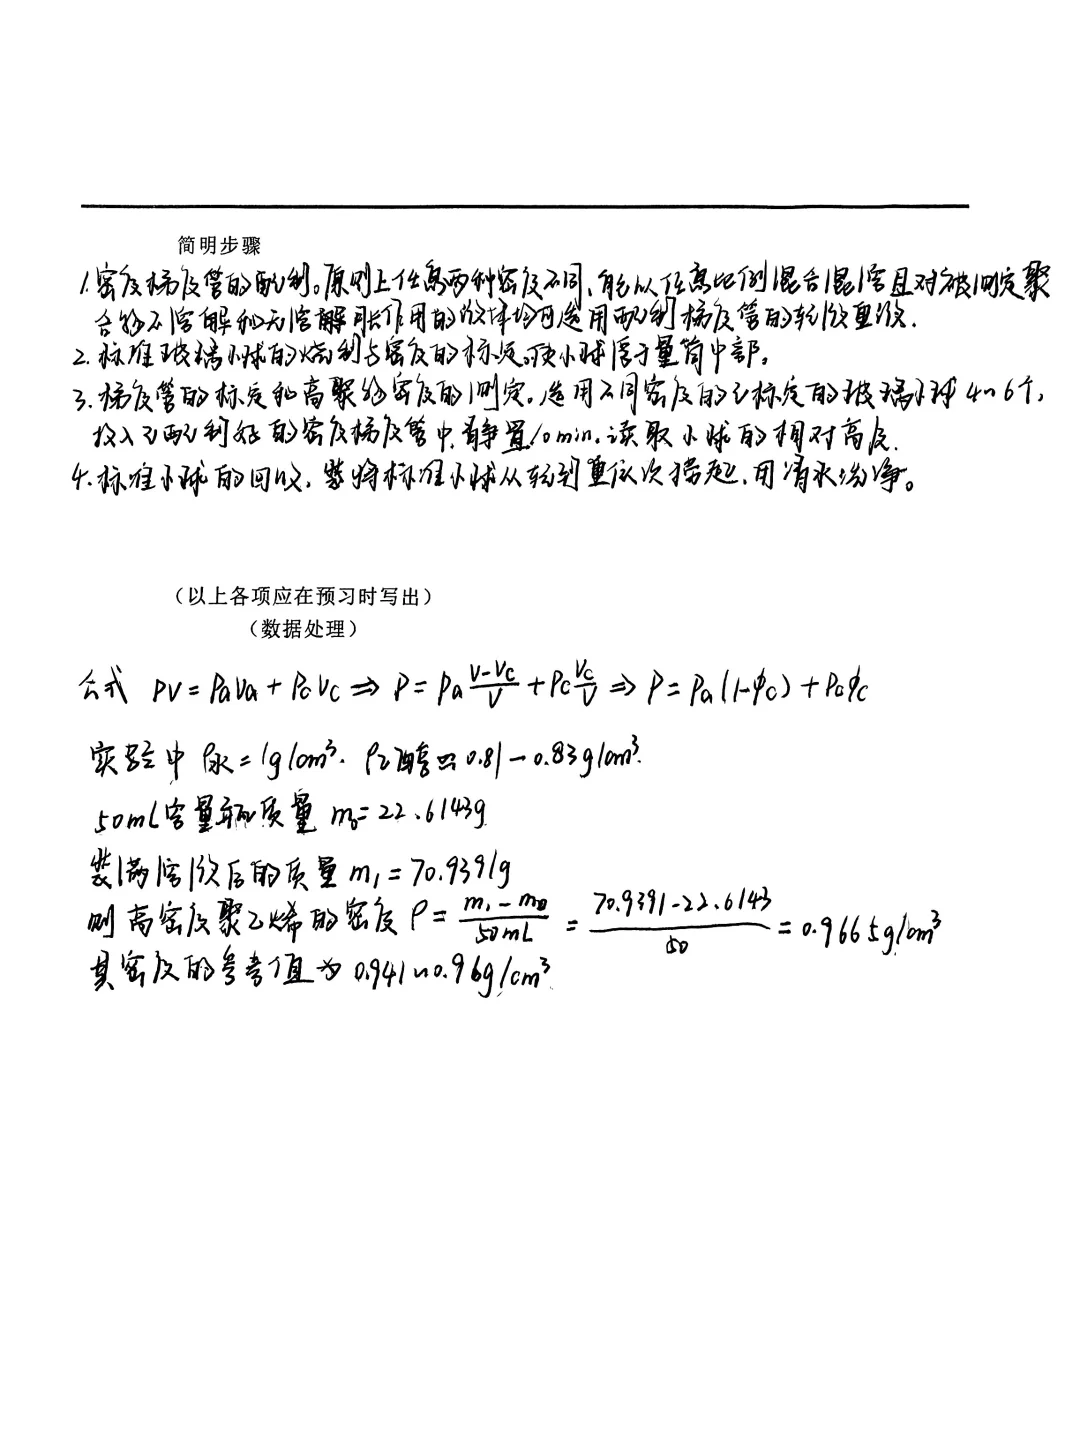 简明步骤
1.密度梯度管的配制。原则上任意两种密度不同、能以任意比例混合混溶且对被测定聚
合物不溶解和无溶胀作用的液体均可选用配制梯度管的轻液重液.
2.标准玻璃小球的烧制与密度的标定。使小球浮于量筒中部。
3.梯度管的标定和高聚物密度的测定。选用不同密度的已标定的玻璃小球4~6个,
投入已配制好的密度梯度管中,静置10min.读取小球的相对高度.
4.标准小球的回收,将标准小球从轻到重依次捞起、用清水洗净。
(以上各项应在预习时写出)
(数据处理)
公式 ρV=ρaVa+ρcVc⇒ρ=ρa(V-Vc)/V+ρcVc/V⇒ρ=ρa(1-φc)+ρcφc
实验中ρ水=1g/cm³.ρ乙醇=0.81-0.83g/cm³.
50mL容量瓶质量m₀=22.6143g
装满溶液后的质量m₁=70.9391g
则高密度聚乙烯的密度ρ=(m₁-m₀)/50mL=(70.9391-22.6143)/50=0.9665g/cm³
其密度的参考值为0.941~0.96g/cm³